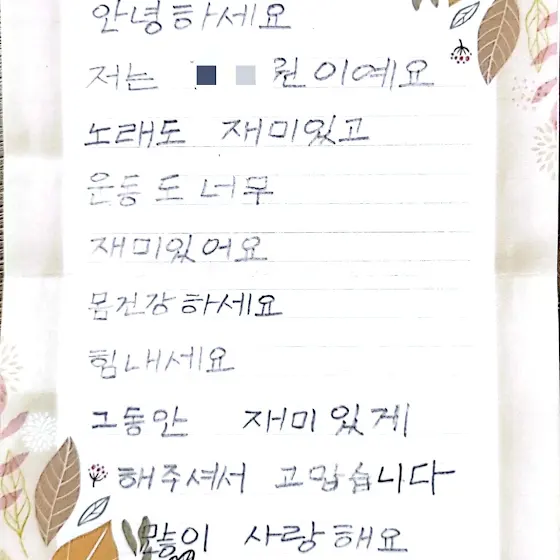 안녕하세요
저는 원이예요
노래도 재미있고
운동도 너무
재미있어요
몸건강하세요
힘내세요
그동안 재미있게
해주셔서 고맙습니다
많이 사랑해요